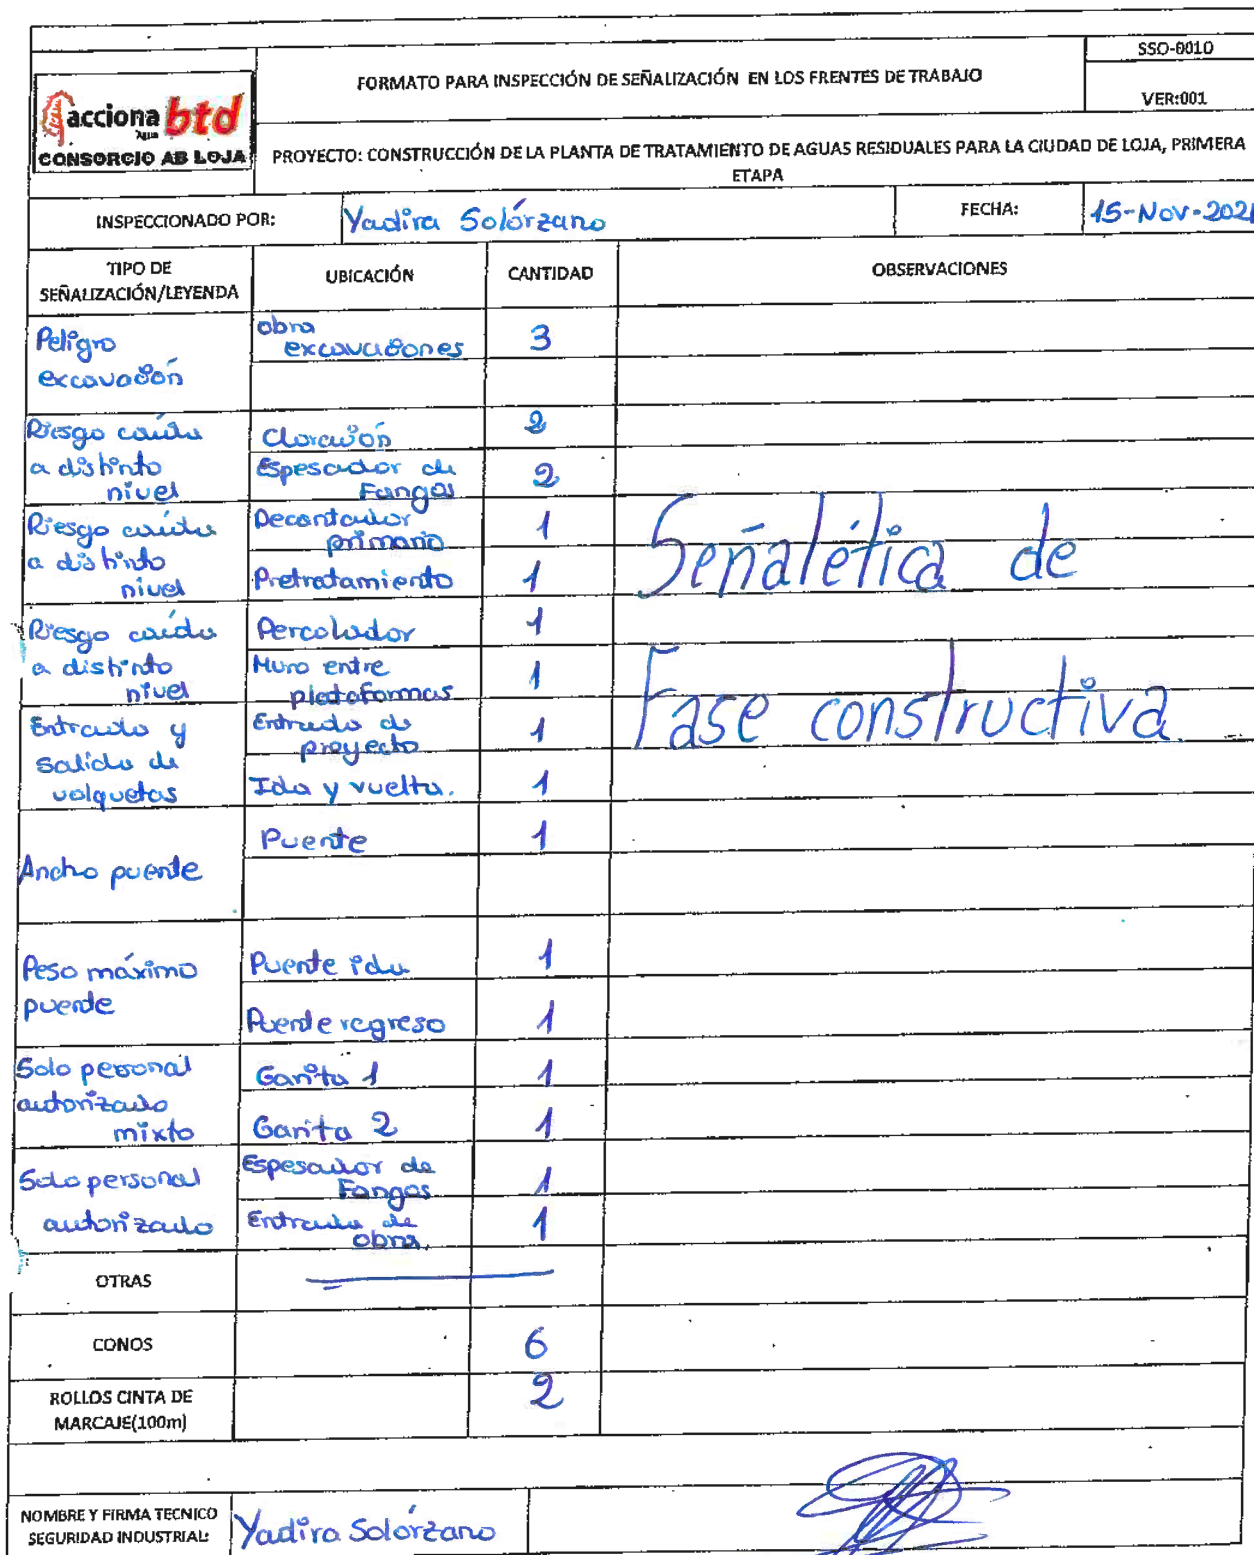 SSO-0010
FORMATO PARA INSPECCIÓN DE SEÑALIZACIÓN EN LOS FRENTES DE TRABAJO
VER:001
acciona btd
Agua
CONSORCIO AB LOJA
PROYECTO: CONSTRUCCIÓN DE LA PLANTA DE TRATAMIENTO DE AGUAS RESIDUALES PARA LA CIUDAD DE LOJA, PRIMERA
ETAPA
INSPECCIONADO POR: Yadira Solórzano FECHA: 15-Nov-2021
TIPO DE
SEÑALIZACIÓN/LEYENDA UBICACIÓN CANTIDAD OBSERVACIONES
Peligro
excavación
obra
excavaciones 3
Riesgo caída
a distinto
nivel
Cloración 2
Espesador de
Fangos 2
Riesgo caída
a distinto
nivel
Decantador
primario 1
Pretratamiento 1
Señalética de
Riesgo caída
a distinto
nivel
Percolador 1
Muro entre
plataformas 1
Fase constructiva
Entrada y
salida de
volquetas
Entrada de
proyecto 1
Ida y vuelta. 1
Ancho puente
Puente 1
Peso máximo
puente
Puente ida 1
Puente regreso 1
Solo personal
autorizado
mixto
Garita 1 1
Garita 2 1
Solo personal
autorizado
Espesador de
Fangos 1
Entrada de
obra. 1
OTRAS
CONOS 6
ROLLOS CINTA DE
MARCAJE(100m) 2
NOMBRE Y FIRMA TECNICO
SEGURIDAD INDUSTRIAL: Yadira Solórzano